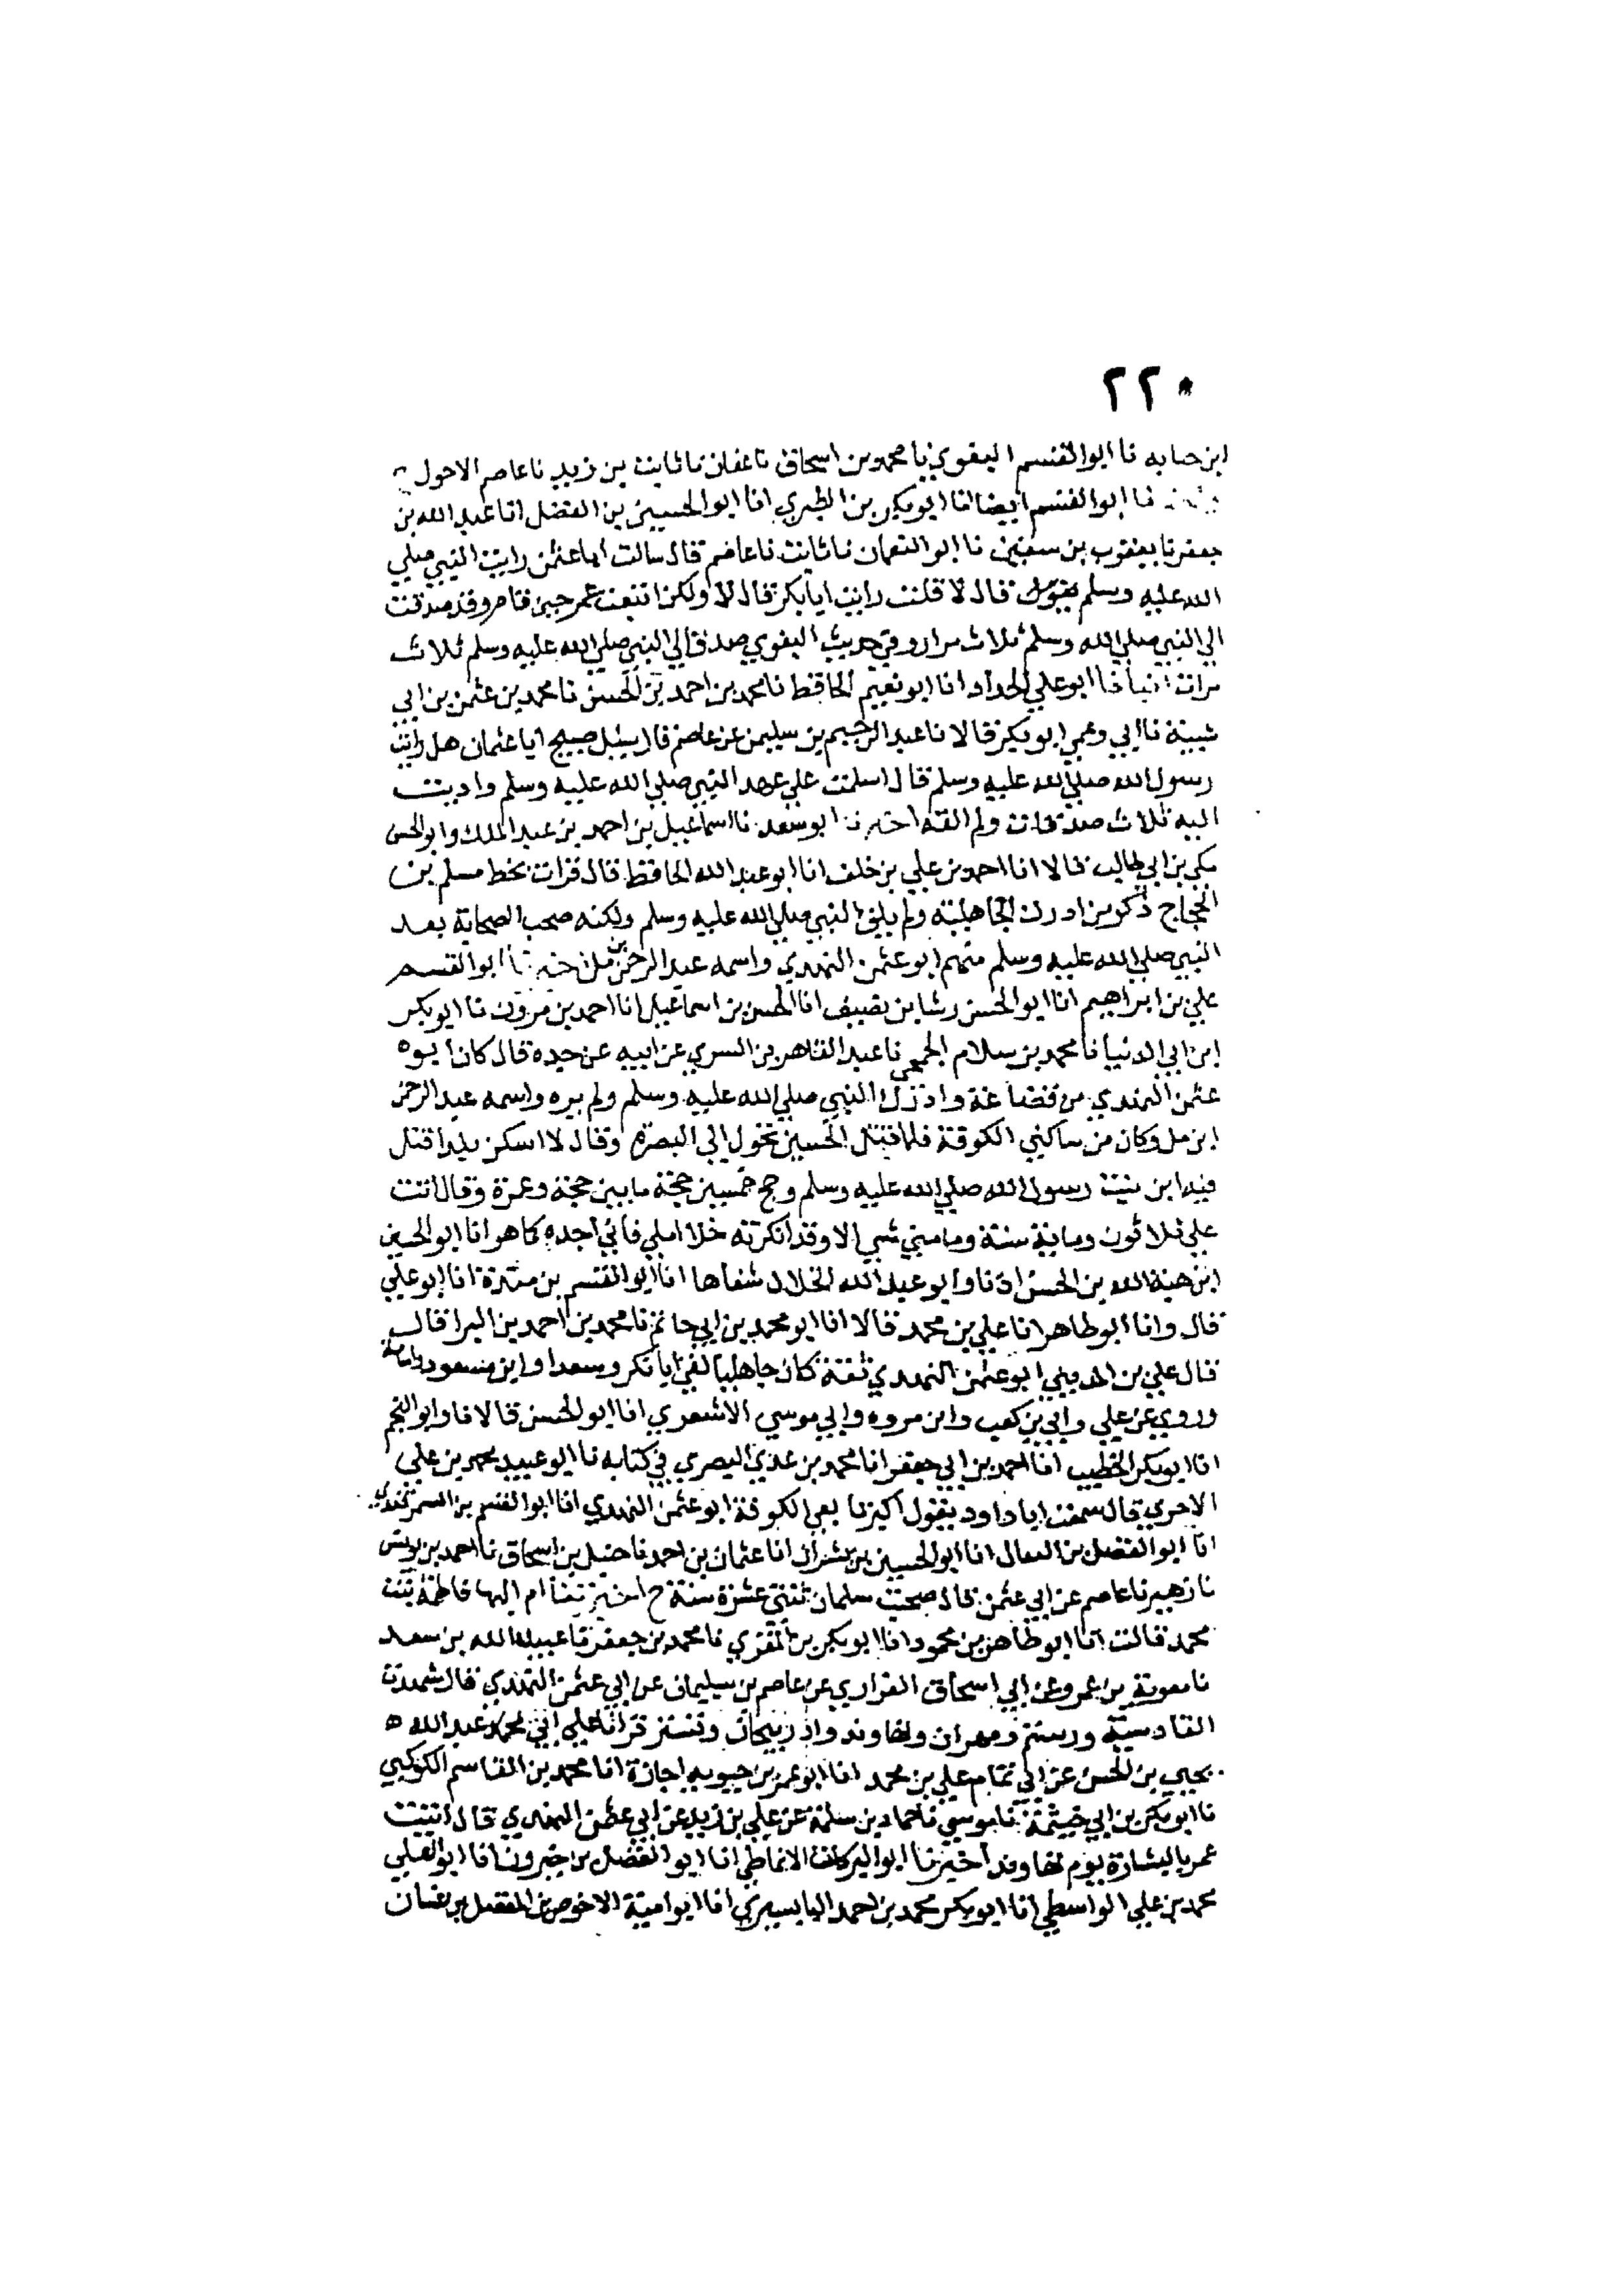 ٢٢٠
ابن حبابه نا ابو القسم البغوي نا محمد بن اسحاق نا عفان نا ثابت بن زيد نا عاصم الاحول
نا ابو القسم ايضا انا ابو بكر بن الطبري انا ابو الحسين بن الفضل انا عبد الله بن
جعفر نا يعقوب بن سفين نا ابو النعمان نا ثابت نا عاصم قال سالت ابا عثمن رايت النبي صلي
الله عليه وسلم قال لا قلت رايت ابا بكر قال لا ولكن اتبعت عمر حين قام وقد صدقت
الي النبي صلي الله وسلم ثلاث مرار وفي حديث البغوي صدق الي النبي صلي الله عليه وسلم ثلاث
مرات انبانا ابو علي الحداد انا ابو نعيم الحافظ نا محمد بن احمد بن الحسن نا محمد بن عثمن بن ابي
شيبة نا ابي وعمي ابو بكر قالا نا عبد الرحيم بن سليمن عن عاصم قال سيل صبيح ابا عثمان هل رايت
رسول الله صلي الله عليه وسلم قال اسلمت علي عهد النبي صلي الله عليه وسلم واديت
اليه ثلاث صدقات ولم القه اخبرنا ابو سعد نا اسماعيل بن احمد بن عبد الملك وابو الحسن
مكي بن ابي طالب قالا انا احمد بن علي بن خلف انا ابو عبد الله الحافظ قال قرات بخط مسلم بن
الحجاج ذكر من ادرك الجاهلية ولم يلق النبي صلي الله عليه وسلم ولكنه صحب الصحابة بعد
النبي صلي الله عليه وسلم منهم ابو عثمن النهدي واسمه عبد الرحمن بن مل اخبرنا ابو القسم
علي بن ابراهيم انا ابو الحسن رشا بن نظيف انا الحسن بن اسماعيل انا احمد بن مرون نا ابو بكر
ابن ابي الدنيا نا محمد بن سلام الجمحي نا عبد القاهر بن السري عن ابيه عن جده قال كان ابوه
عثمن النهدي من قضاعة وادرك النبي صلي الله عليه وسلم ولم يره واسمه عبد الرحمن
ابن مل وكان من ساكني الكوفة فلما قتل الحسين تحول الي البصرة وقال لا اسكن بلدا قتل
فيه ابن بنت رسول الله صلي الله عليه وسلم وحج خمسين حجة ما بين حجة وعمرة وقال اتت
علي ثلاثون وماية سنة وما مني شي الا وقد انكرته خلا املي فاني اجده كما هو انا ابو الحسين
ابن هبة الله بن الحسن اذنا وابو عبد الله الخلال شفاها انا ابو القسم بن مندة انا ابو علي
قال وانا ابو طاهر انا علي بن محمد قالا انا ابو محمد بن ابي حاتم نا محمد بن احمد بن البرا قال
قال علي بن المديني ابو عثمن النهدي ثقة كان جاهليا لقي ابا بكر وسعدا وابن مسعود واسامة
وروي عن علي وابي بن كعب وابن مروه وابي موسي الاشعري انا ابو الحسن قالا نا وابو النجم
انا ابو بكر الخطيب انا احمد بن ابي جعفر انا محمد بن عدي البصري في كتابه نا ابو عبيد محمد بن علي
الاجري قال سمعت ابا داود يقول اكبر تابعي الكوفة ابو عثمن النهدي انا ابو القسم بن السمرقندي
انا ابو الفضل بن البقال انا ابو الحسين بن بشران انا عثمان بن احمد نا حنبل بن اسحاق نا احمد بن يونس
نا زهير نا عاصم عن ابي عثمن قال صحبت سلمان ثنتي عشرة سنة ح اخبرتنا ام البها فاطمة بنت
محمد قالت انا ابو طاهر بن محمود انا ابو بكر بن المقري نا محمد بن جعفر نا عبيد الله بن سعد
نا معوية بن عمرو عن ابي اسحاق الفزاري عن عاصم بن سليمان عن ابي عثمن النهدي قال شهدت
القادسية ورستم ومهران ونهاوند واذربيجان وتستر قرات علي ابي محمد عبد الله ه
يحيي بن الحسن عن ابي تمام علي بن محمد انا ابو عمر بن حيويه اجازة انا محمد بن القاسم الكوكبي
نا ابو بكر بن ابي خيثمة نا موسي نا حماد بن سلمة عن علي بن زيد عن ابي عثمن النهدي قال اتيت
عمر بالبشارة يوم نهاوند اخبرنا ابو البركات الانماطي انا ابو الفضل بن خيرون انا ابو العلي
محمد بن علي الواسطي انا ابو بكر محمد بن احمد البابسيري انا ابو امية الاخوص بن المفضل بن غسان